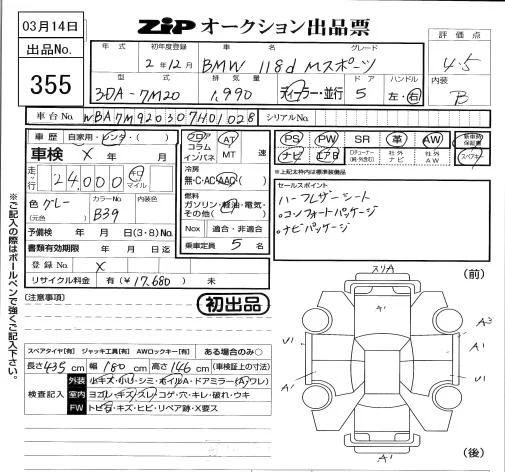 03月14日
ZiP オークション出品票
出品No. 355
年式 初年度登録 車名 グレード
2年12月 BMW 118d Mスポーツ
評価点 4.5
型式 排気量 ドア ハンドル
3DA-7M20 1,990 ディーラー・並行 5 左・右
内装 B
車台No. WBA7M920307H01028 シリアルNo.
車歴 自家用・レンタ・( )
車検 X 年 月
走行 24,000 キロ マイル
色 グレー (元色) カラーNo. B39 内装色
予備検 年 月 日(3・8)No.
書類有効期限 年 月 日迄
登録No. X
リサイクル料金 有(¥17,680) 未
フロア コラム インパネ AT MT 速
冷房 無・C・AC・AAC
燃料 ガソリン・軽油・電気・その他( )
Nox 適合・非適合
乗車定員 5 名
PS PW SR 革 AW 新車時保証書
ナビ エアB 社外ナビ 社外AW スペアキー
※上記太枠内は標準装備品
セールスポイント
ハーフレザーシート
。コンフォートパッケージ
。ナビパッケージ
※ご記入の際はボールペンで強くご記入下さい。
(注意事項)
初出品
スペアタイヤ[有] ジャッキ工具[有] AWロックキー[有] ある場合のみ○
長さ 435 cm 幅 180 cm 高さ 146 cm (車検証上の寸法)
検査記入
外装 小キズ・小凹・シミ・ホイルA・ドアミラー(A・ワレ)
室内 ヨゴレ・キズ・スレ・コゲ・穴・キレ・破れ・ウキ
FW トビ石・キズ・ヒビ・リペア跡・X要ス
スリA (前)
A' A3
U1 U1 A1
A' A1
A' (後)